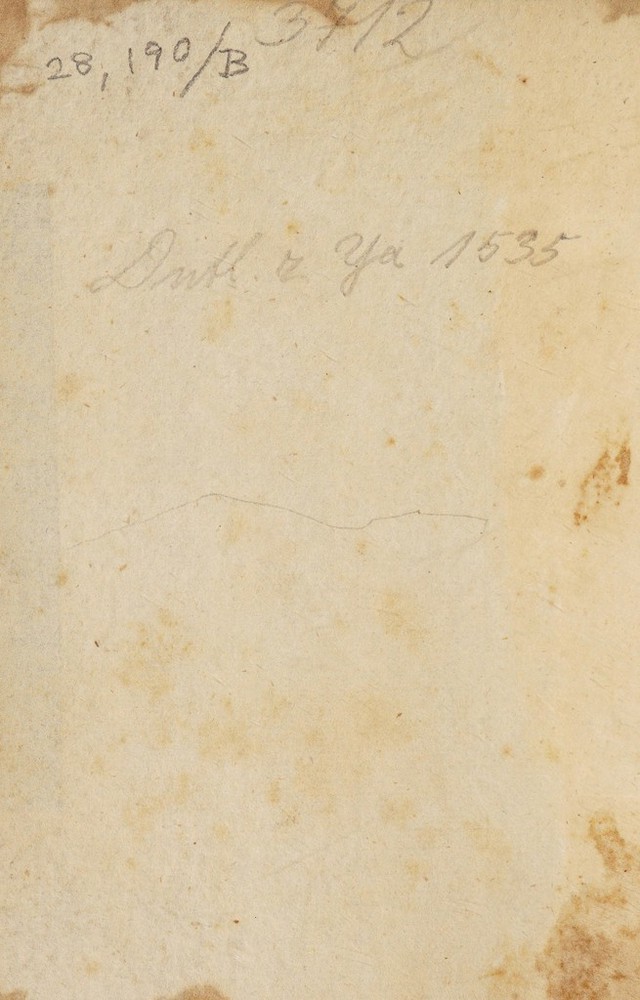 3712
28,190/B
Dutl. z Ya 1535